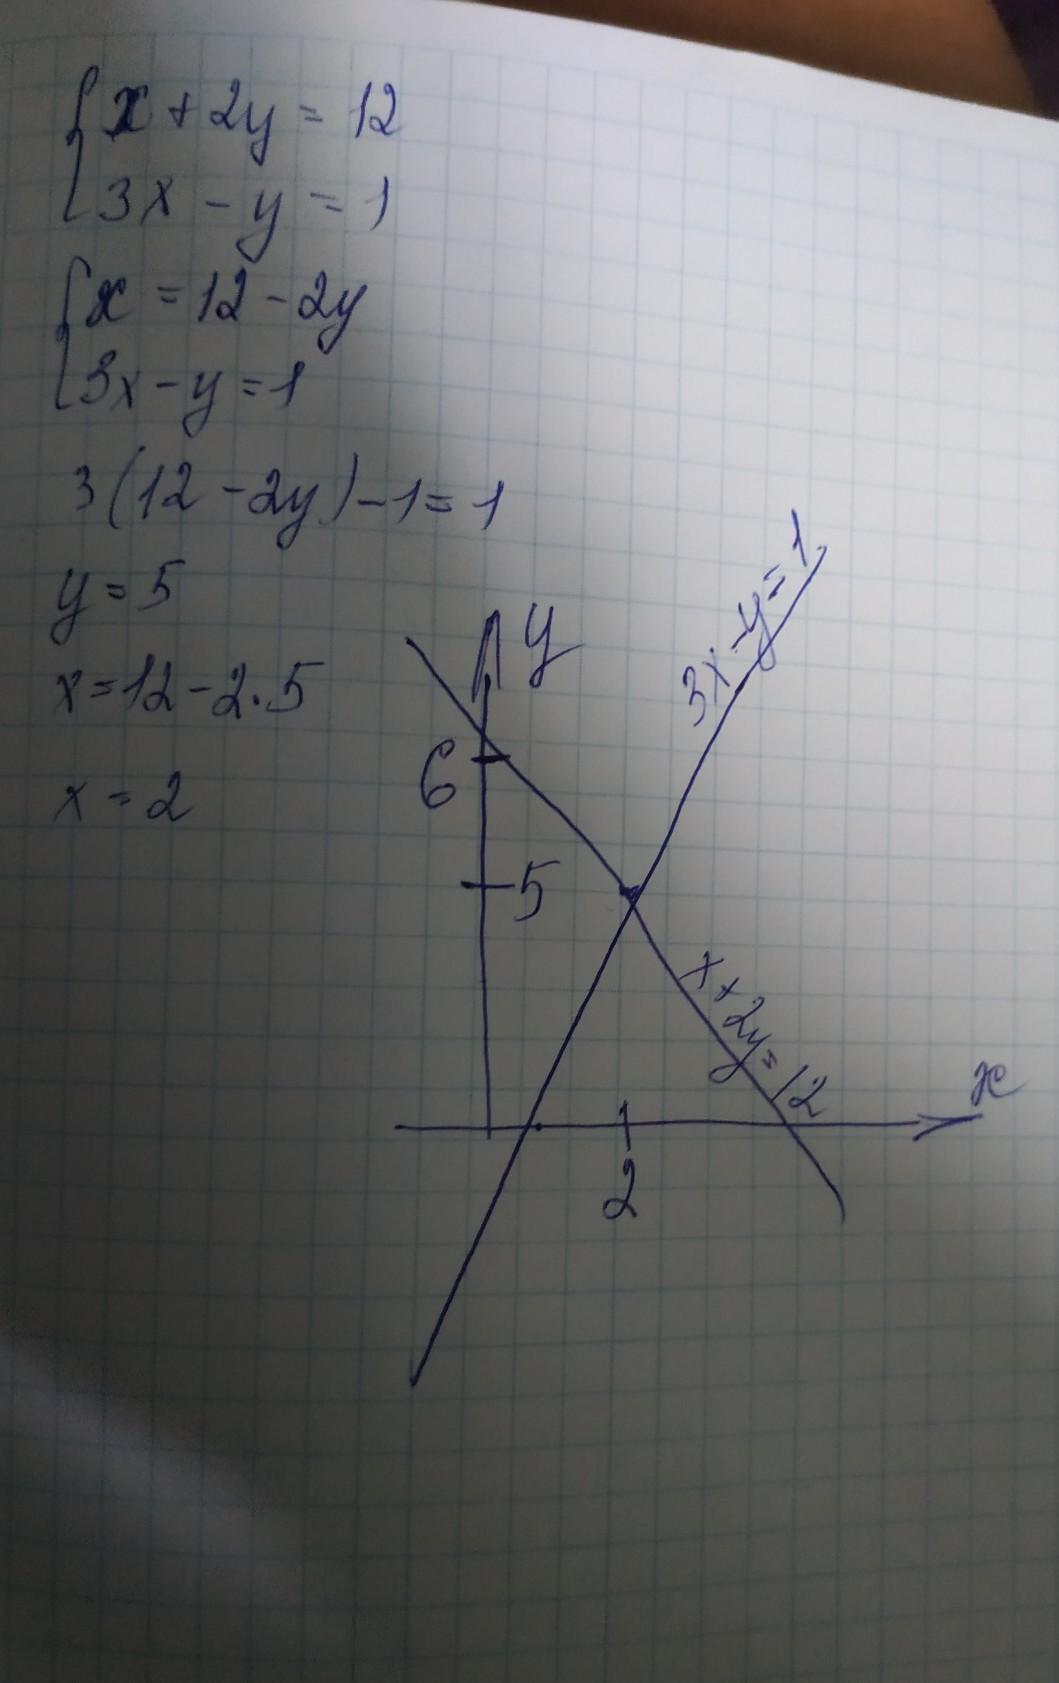 { x + 2y = 12
3x - y = 1
{ x = 12 - 2y
3x - y = 1
3(12 - 2y) - 1 = 1
y = 5
x = 12 - 2 · 5
x = 2
y
3x - y = 1
6
5
x + 2y = 12
x
2